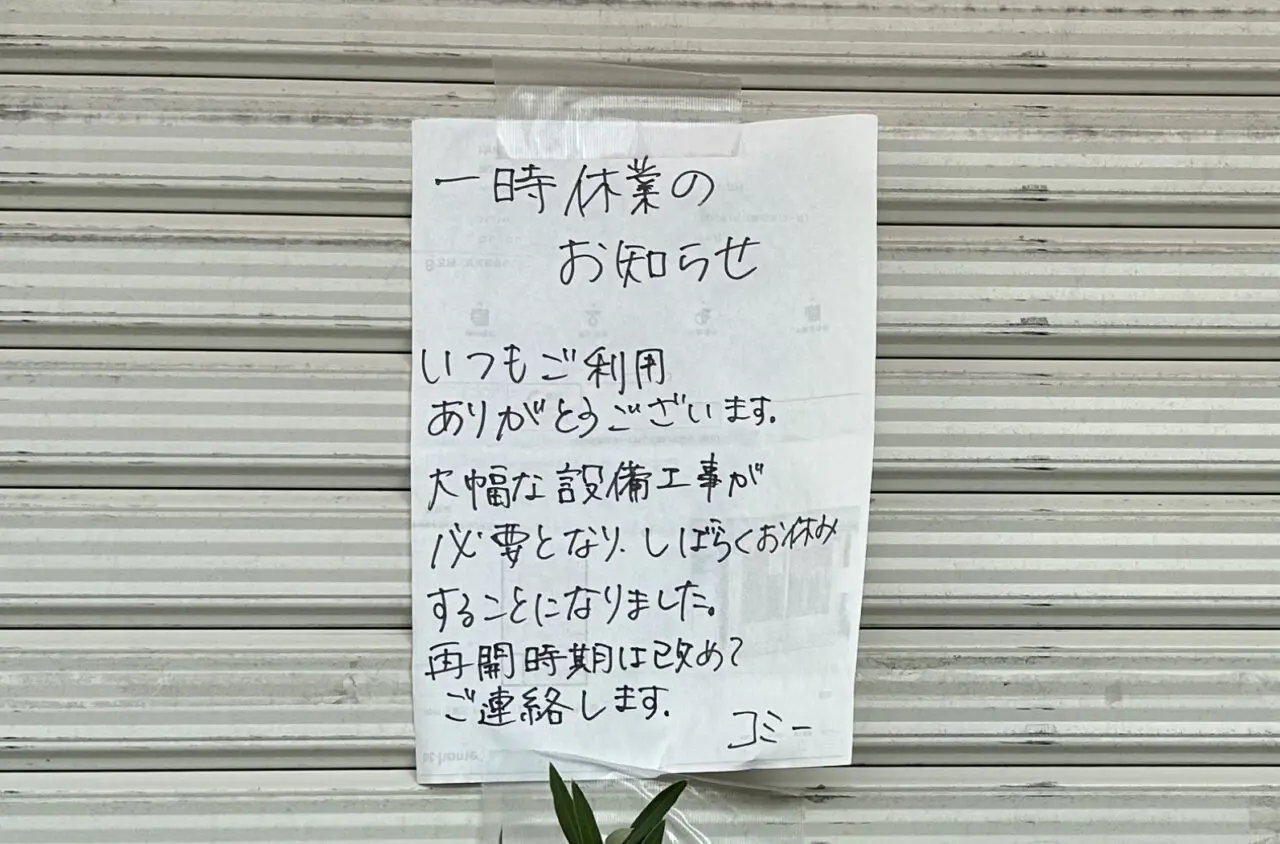 一時休業の
お知らせ
いつもご利用
ありがとうございます。
大幅な設備工事が
必要となり、しばらくお休み
することになりました。
再開時期は改めて
ご連絡します。
コミー